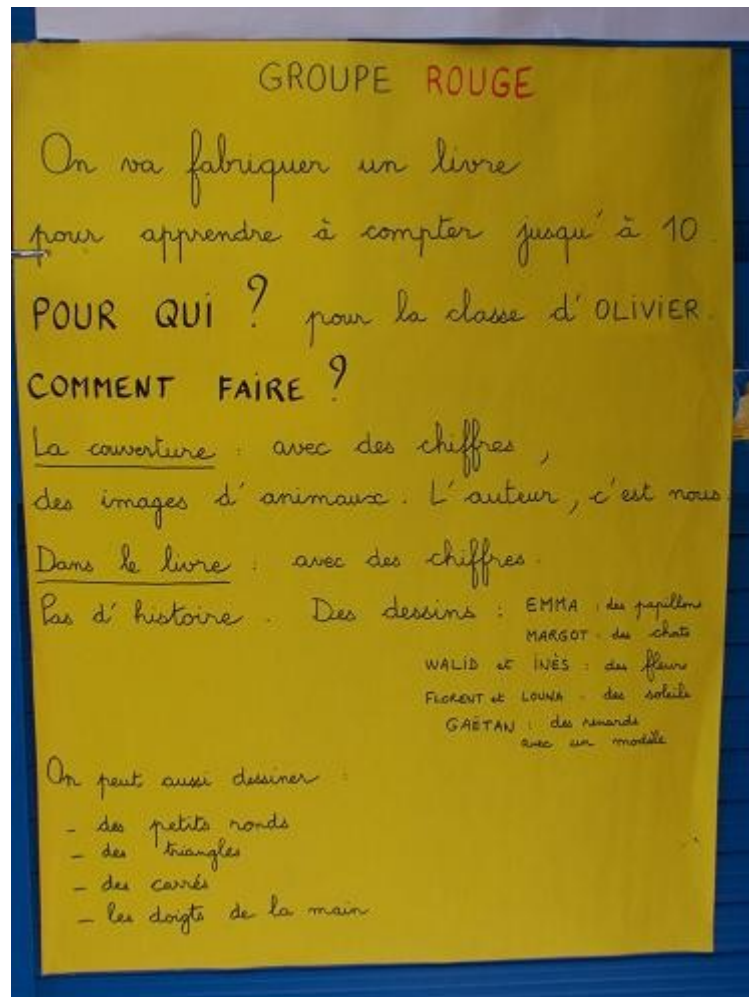 GROUPE ROUGE
On va fabriquer un livre
pour apprendre à compter jusqu'à 10.
POUR QUI ? pour la classe d'OLIVIER.
COMMENT FAIRE ?
La couverture : avec des chiffres,
des images d'animaux. L'auteur, c'est nous.
Dans le livre : avec des chiffres.
Pas d'histoire. Des dessins : EMMA : des papillons
MARGOT : des chats
WALID et INÈS : des fleurs
FLORENT et LOUNA : des soleils
GAËTAN : des renards
avec un modèle
On peut aussi dessiner :
- des petits ronds
- des triangles
- des carrés
- les doigts de la main